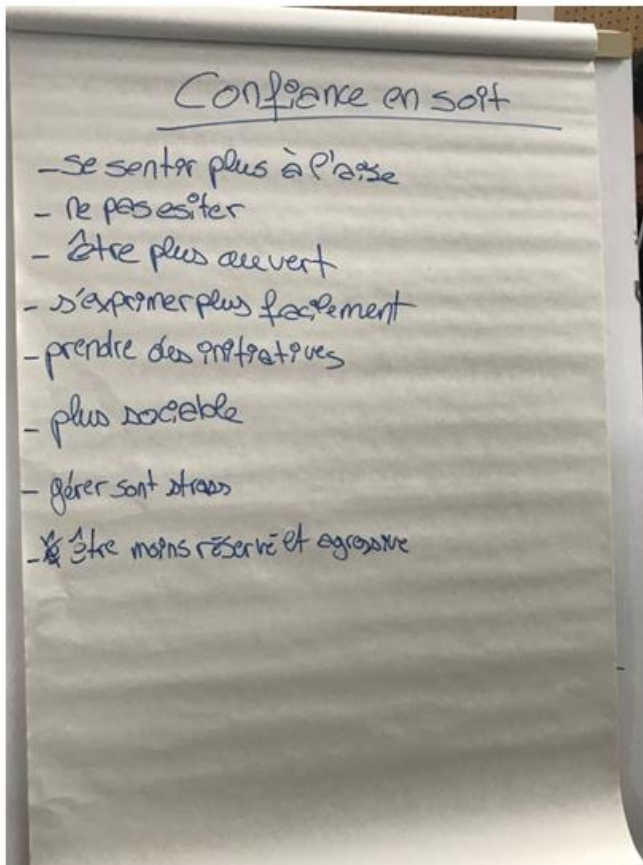 Confiance en soit
- se sentir plus à l'aise
- ne pas esiter
- être plus ouvert
- s'exprimer plus facilement
- prendre des initiatives
- plus sociable
- gérer sont stress
- être moins réservé et agressive